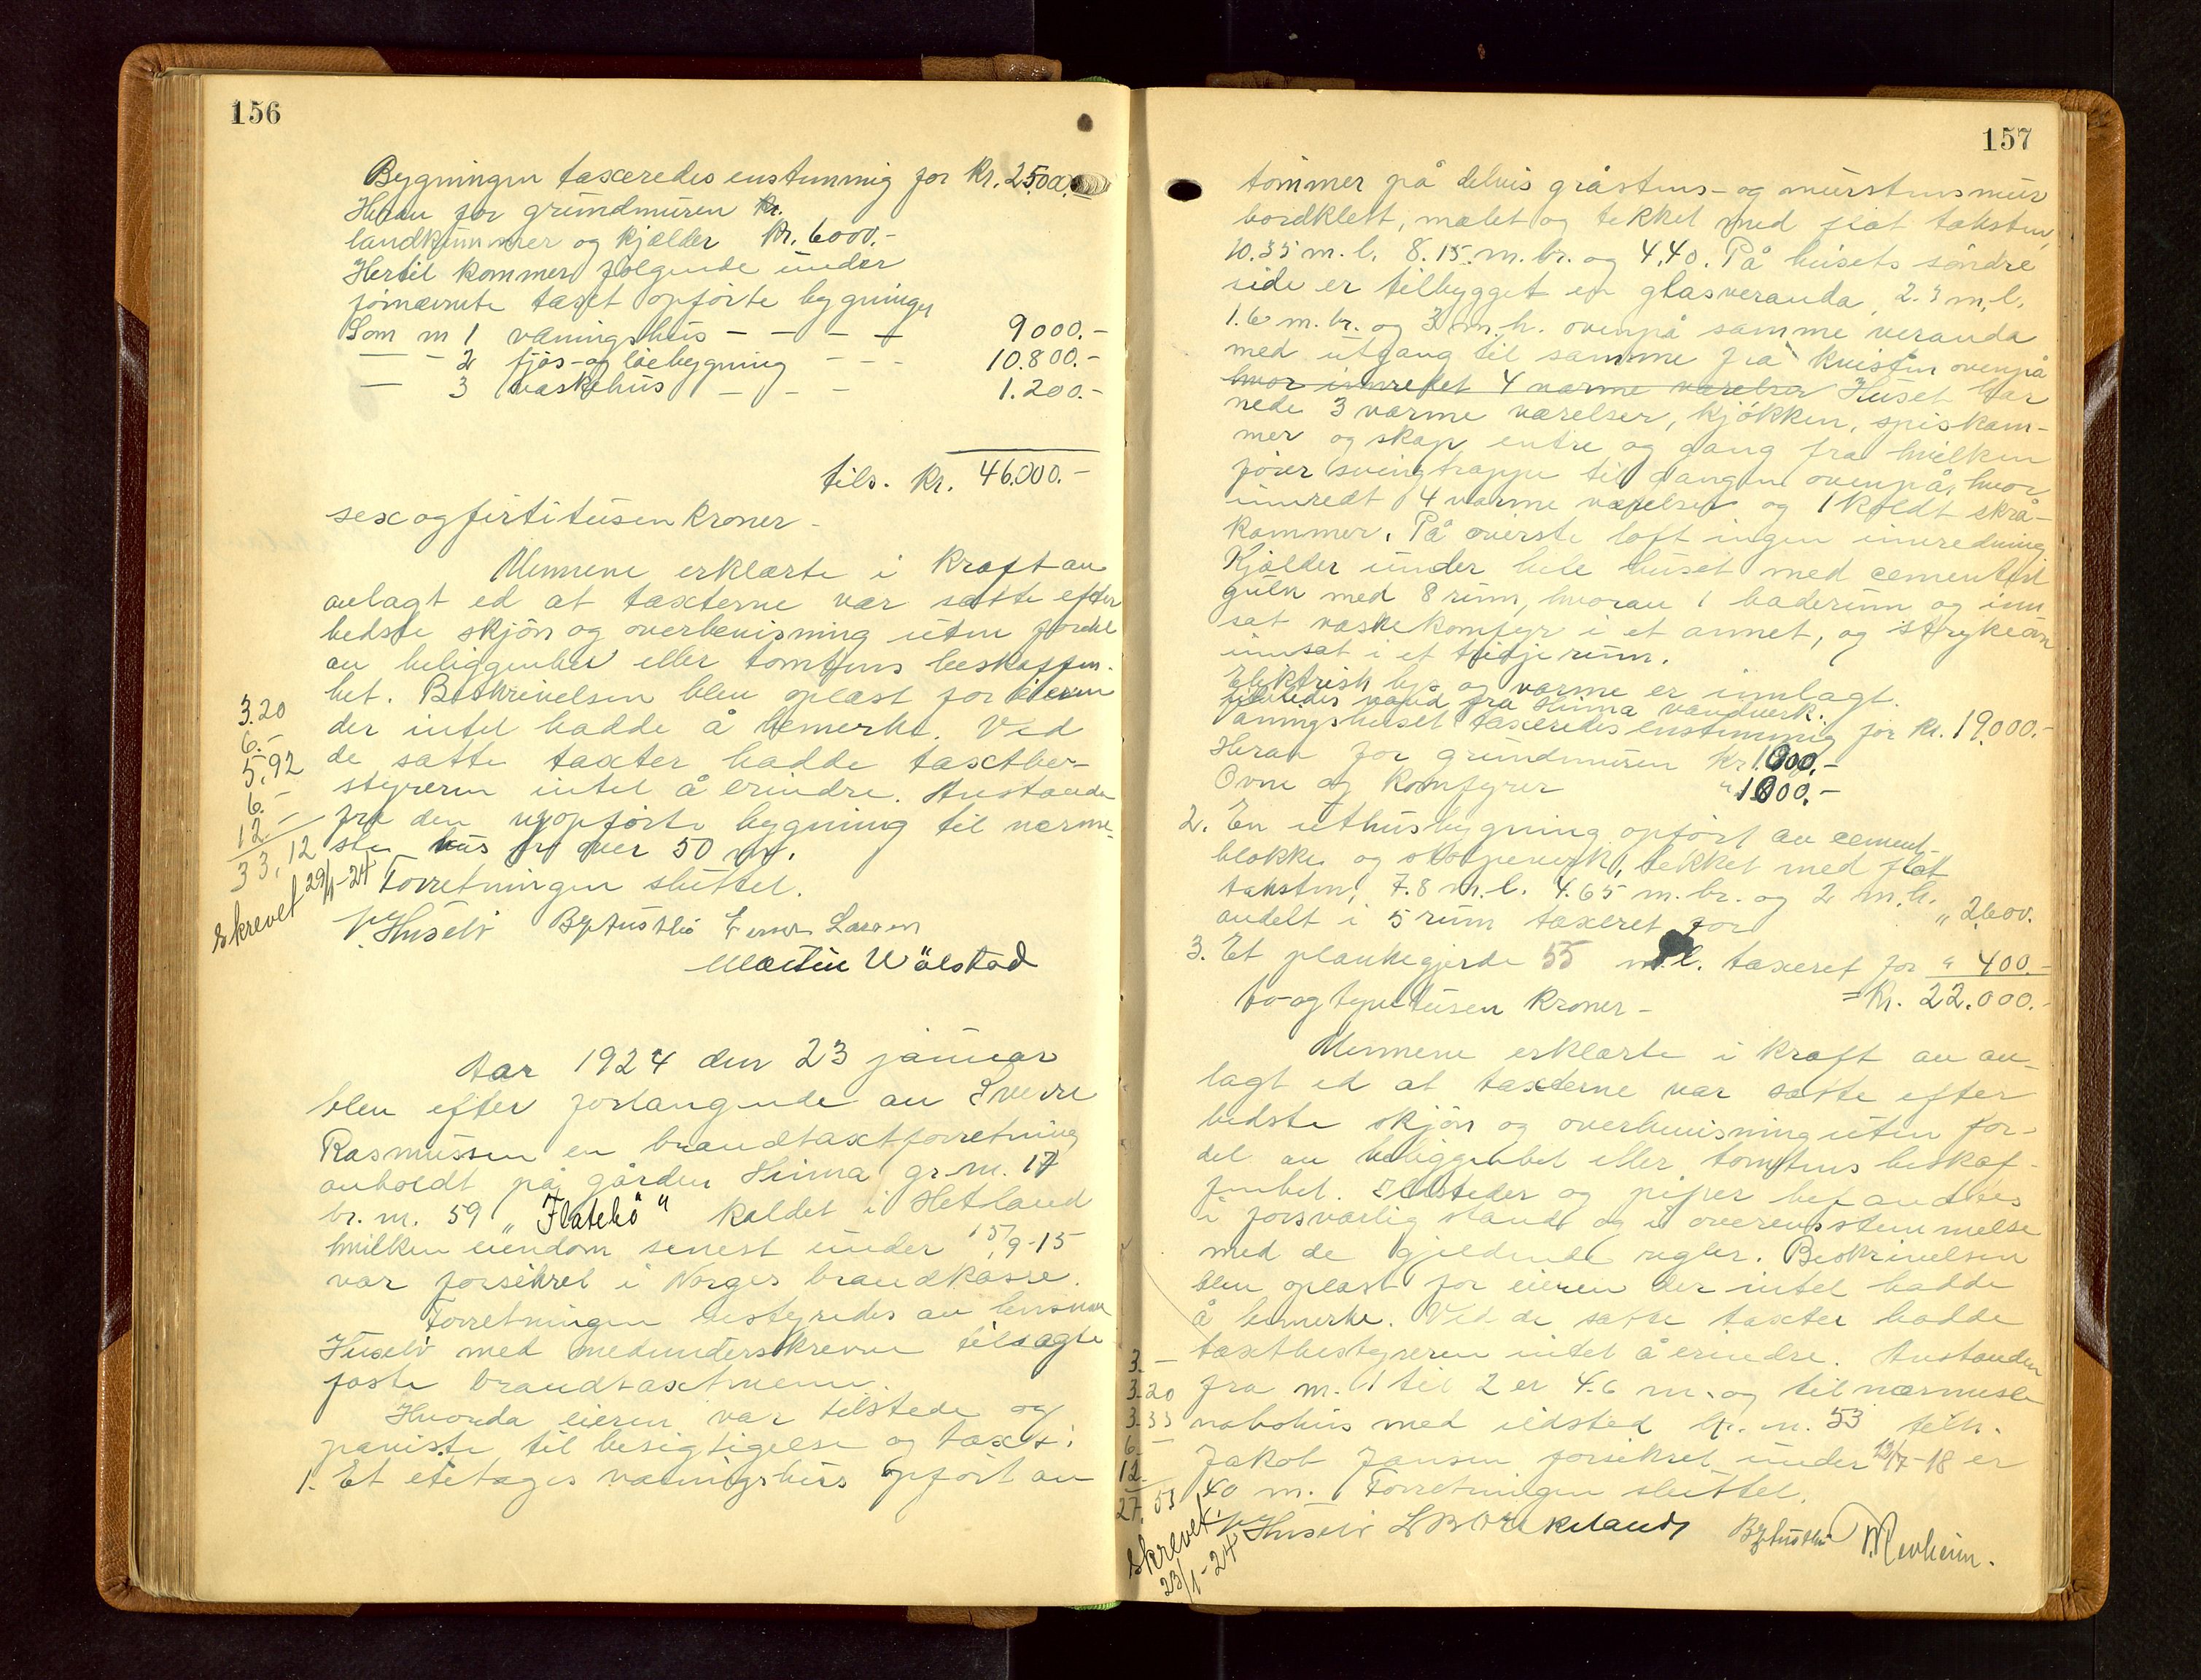 156
Bygningen taxeredes enstemmig for kr. 25.000.-
Herav for grundmuren
landkummer og kjælder kr. 6000.-
Hertil kommer følgende under
førnævnte taxt opførte bygninger
Som nr 1 våningshus - - - - 9000.-
— - 2 fjøs- og løebygning - - - 10.800.-
— 3 vaskehus - - - 1.200.-
tils. kr. 46.000.-
sexogførtitusen kroner -
Mennene erklærte i kraft av
avlagt ed at taxterne var satte efter
bedste skjøn og overbevisning uten fordel
av beliggenhet eller tomtens beskaffen-
het. Beskrivelsen blev oplæst for eieren
der intet hadde å bemerke. Ved
de satte taxter hadde taxtbe-
styreren intet å erindre. Avstanden
fra den nyopførte bygning til nærme-
ste hus er over 50 m.
Forretningen sluttet.
3.20
6.-
5,92
6.-
12.-
33,12
skrevet 29/1-24
Huselv Einar Larsen
Martin Wålstad
Aar 1924 den 23 januar
blev efter forlangende av Sverre
Rasmussen en brandtaxtforretning
avholdt på gården Hinna gr. nr. 17
br. nr. 59 "Flatebø" kaldet i Hetland
hvilken eiendom senest under 15/9-15
var forsikret i Norges brandkasse.
Forretningen bestyredes av lensman
Huselv med medunderskrevne tilsagte
faste brandtaxtmenn.
Hvorda eieren var tilstede og
paviste til besigtigelse og taxt:
1. Et etetages våningshus opført av
157
tømmer på delvis gråstens- og murstensmur
bordklett, malet og tekket med flat taksten,
10.35 m. l. 8.15. m. br. og 4.40. På husets søndre
side er tilbygget en glasveranda, 2.3 m. l.
1.6 m. br. og 3 m. h. ovenpå samme veranda
med utgang til samme fra kvisten ovenpå
hvor innredet 4 varme værelser Huset har
nede 3 varme værelser, kjøkken, spiskam-
mer og skap, entre og gang fra hvilken
fører svingtrappe til gangen ovenpå, hvor
innredt 4 varme værelser og 1 koldt skrå-
kammer. På øverste loft ingen innredning.
Kjælder under hele huset med cementert
gulv med 8 rum, hvorav 1 baderum og inn
sat vaskekomfyr i et annet, og strykeovn
innsat i et tredje rum.
Elektrisk lys og varme er innlagt.
likeledes vand fra Hinna vandverk.
Våningshuset taxeredes enstemmig for kr. 19.000.-
Herav for grundmuren kr. 1000.-
Ovne og komfyrer " 1000.-
2. En uthusbygning opført av cement-
blokke og stolpeverk, tekket med flat
taksten, 7.8 m. l. 4.65 m. br. og 2 m. h.
avdelt i 5 rum taxeret for " 2600.
3. Et plankegjerde 55 m. l. taxeret for " 400.-
to- og tyvetusen kroner - = Kr. 22.000.-
Mennene erklærte i kraft av av-
lagt ed at taxterne var satte efter
bedste skjøn og overbevisning uten for-
del av beliggenhet eller tomtens beskaf-
fenhet. Ildsteder og piper befandtes
i forsvarlig stand og i overensstemmelse
med de gjeldende regler. Beskrivelsen
blev oplæst for eieren der intet hadde
å bemerke. Ved de satte taxter hadde
taxtbestyreren intet å erindre. Avstanden
fra nr. 1 til 2 er 4.6 m. og til nærmeste
nabohus med ildsted br. nr. 53 tilh.
Jakob Jansen forsikret under 12/7-18 er
40 m. Forretningen sluttet.
3.-
3.20
3.33
6.-
12.-
27.53
skrevet
23/1-24
Huselv